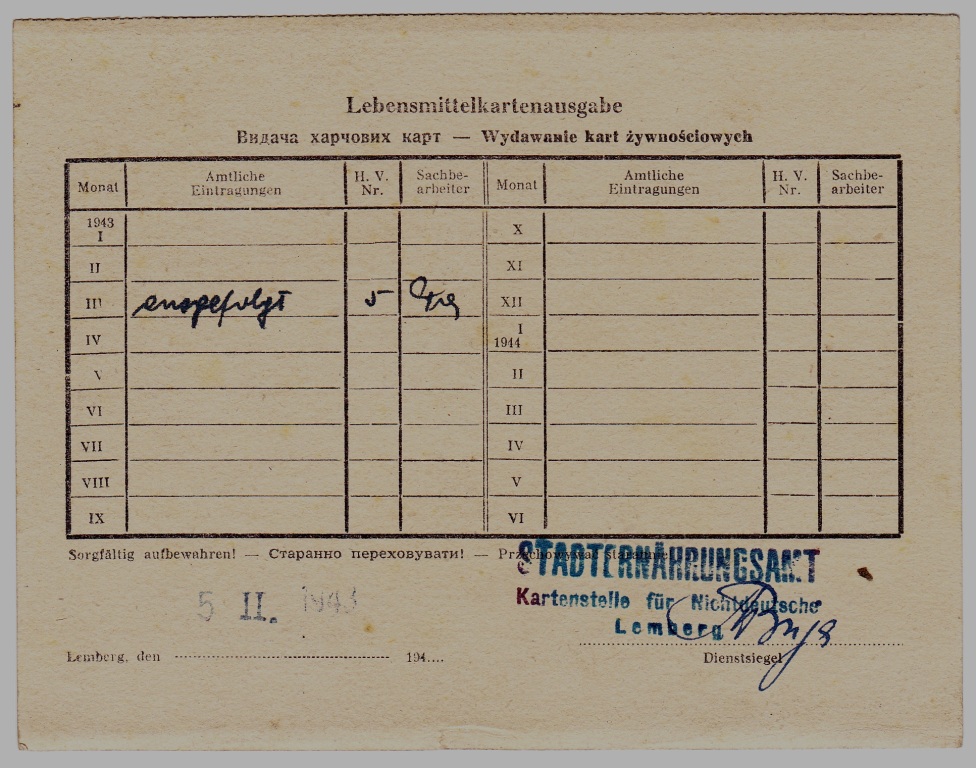 Lebensmittelkartenausgabe
Видача харчових карт — Wydawanie kart żywnościowych
Monat Amtliche Eintragungen H. V. Nr. Sachbe-arbeiter Monat Amtliche Eintragungen H. V. Nr. Sachbe-arbeiter
1943 I X
II XI
III ausgefolgt 5 XII
IV I 1944
V II
VI III
VII IV
VIII V
IX VI
Sorgfältig aufbewahren! — Старанно переховувати! — Przechowywać starannie
STADTERNÄHRUNGSAMT
Kartenstelle für Nichtdeutsche
Lemberg
5 II. 1943
Lemberg, den 194....
Dienstsiegel